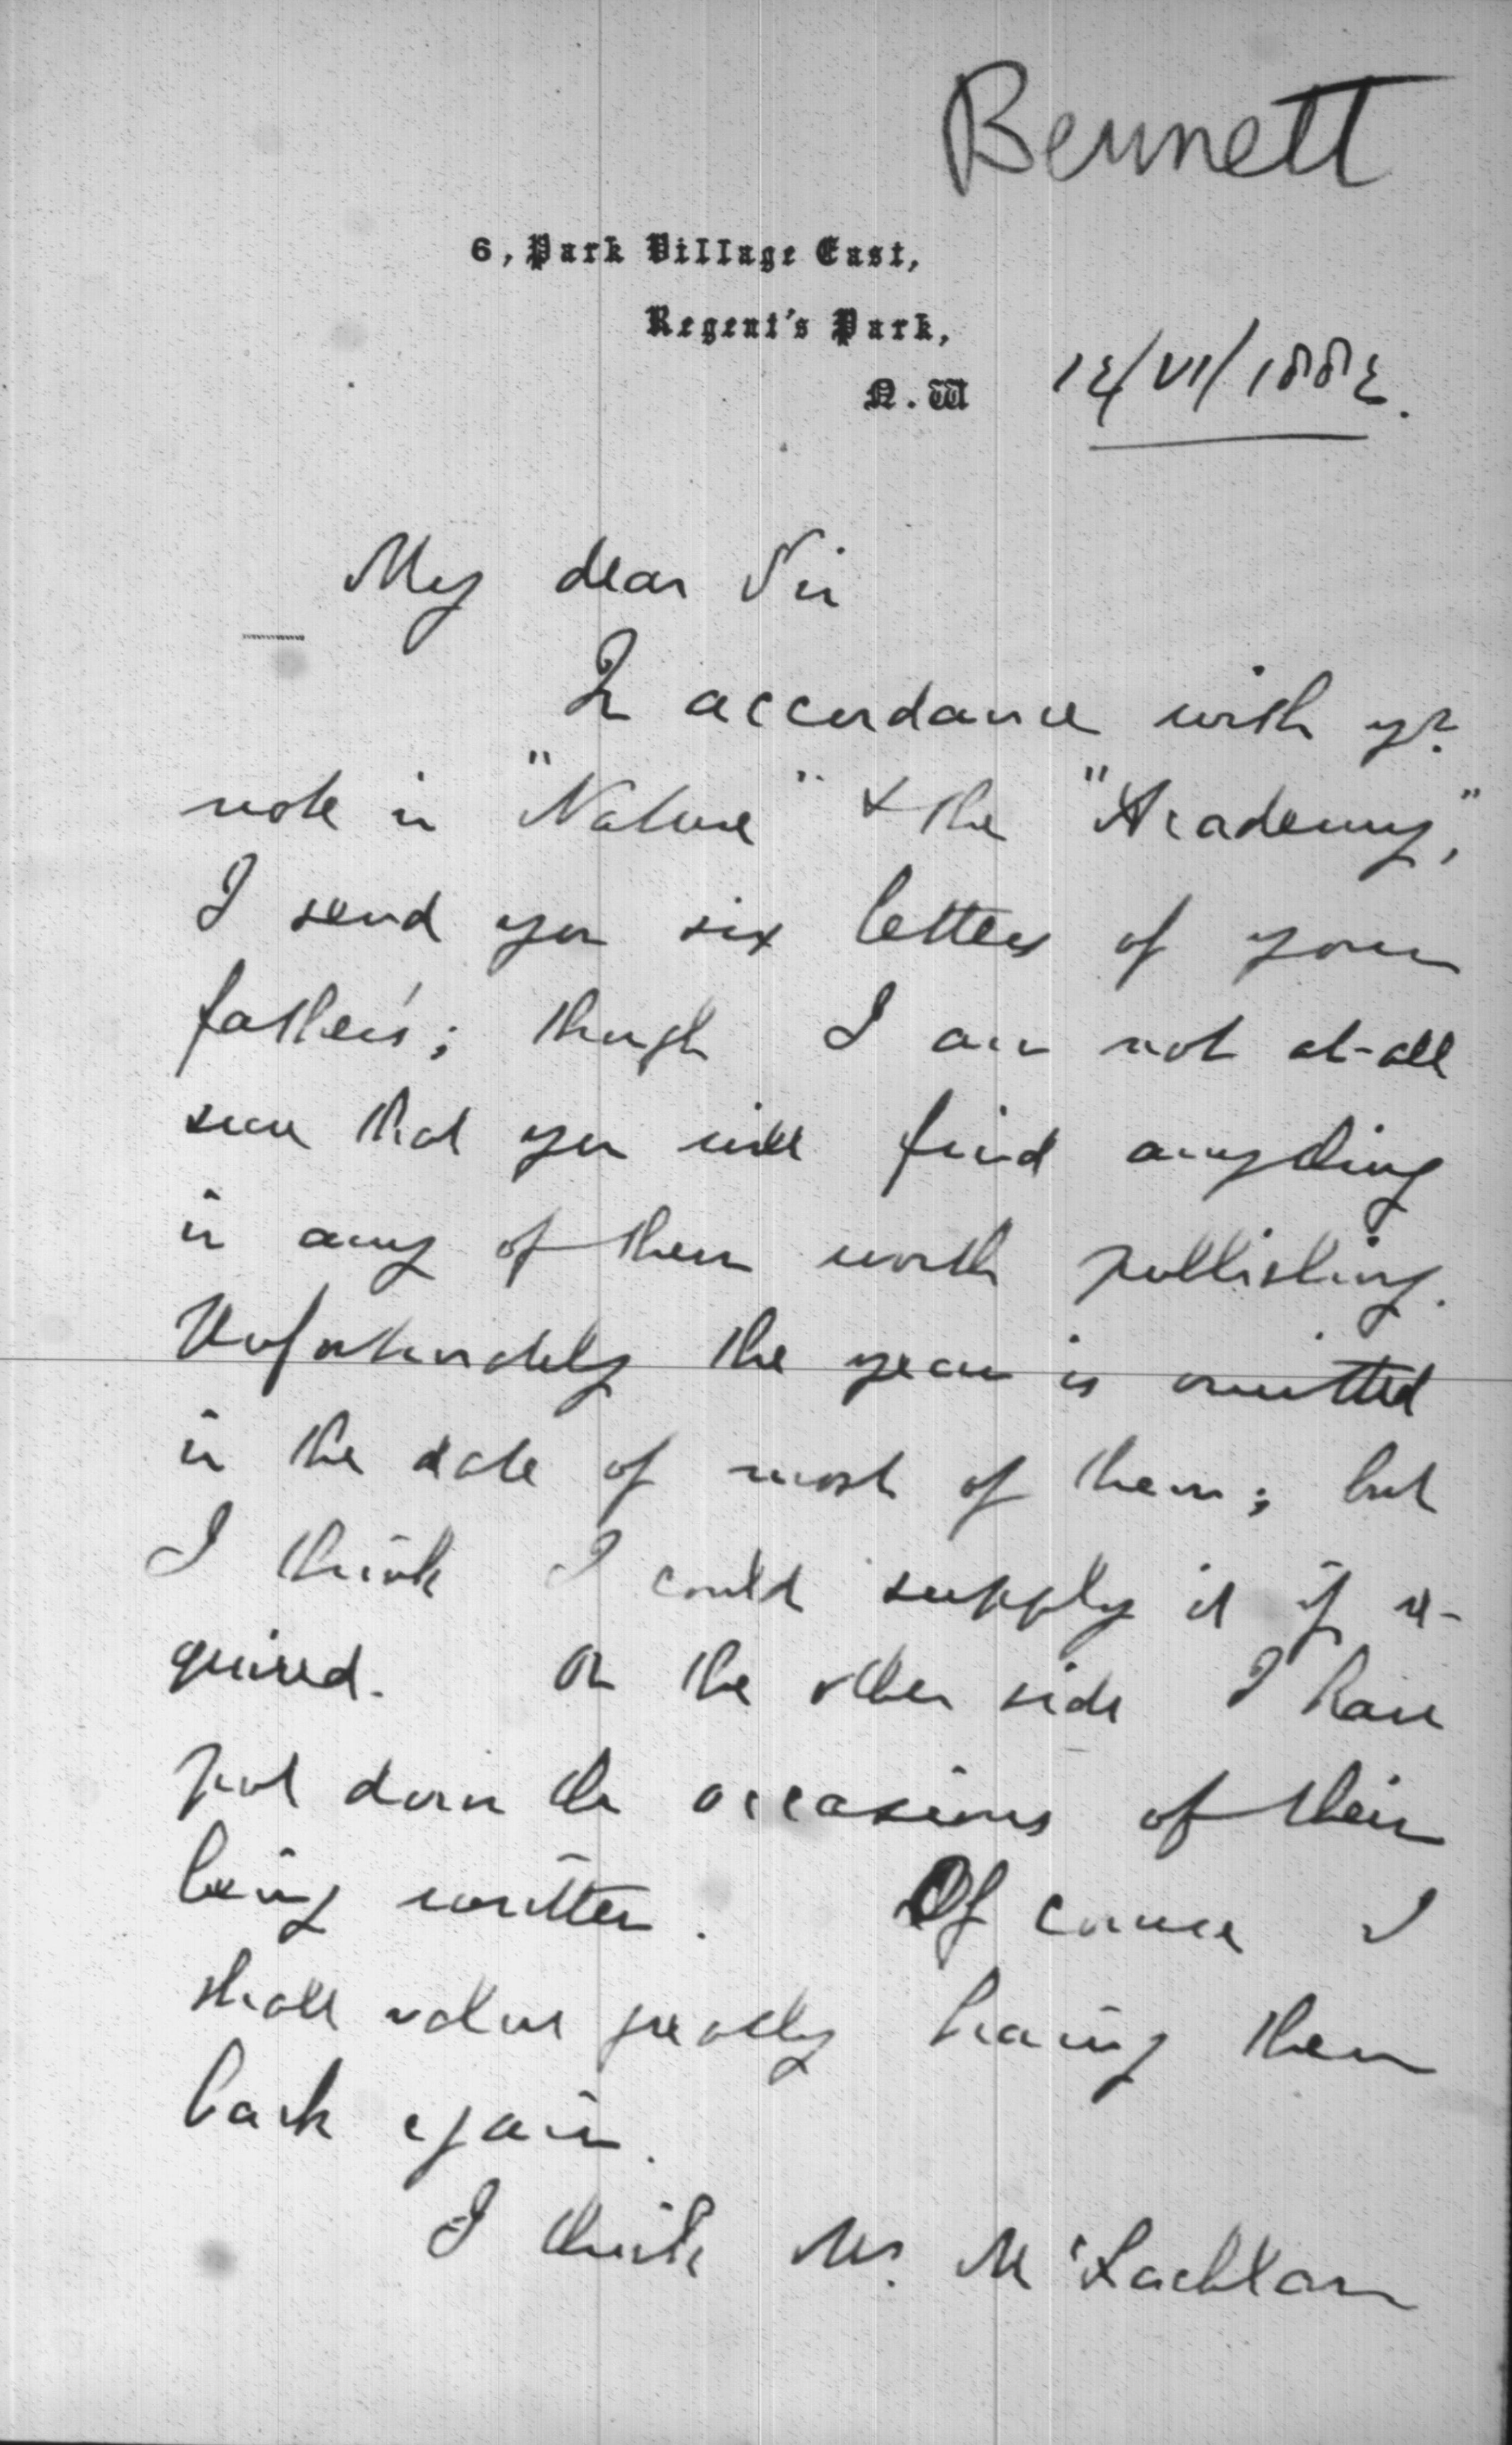 Bennett
6, Park Village East,
Regent's Park,
N.W
12/VI/1882.
My dear Sir
In accordance with yr.
note in "Nature" & the "Academy,"
I send you six letters of your
father's; though I am not at-all
sure that you will find anything
in any of them worth publishing.
Unfortunately the year is omitted
in the date of most of them; but
I think I could supply it if re-
quired. On the other side I have
put down the occasions of their
being written. Of course I
shall value greatly having them
back again.
I think Mr. M'Lachlan